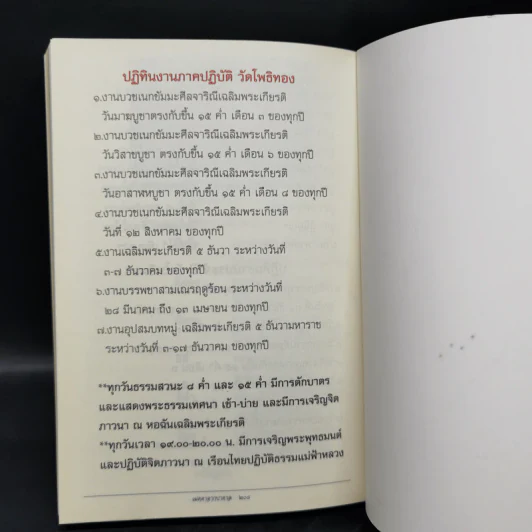 ปฏิทินงานภาคปฏิบัติ วัดโพธิทอง
๑.งานบวชเนกขัมมะศีลจาริณีเฉลิมพระเกียรติ
วันมาฆบูชาตรงกับขึ้น ๑๕ ค่ำ เดือน ๓ ของทุกปี
๒.งานบวชเนกขัมมะศีลจาริณีเฉลิมพระเกียรติ
วันวิสาขบูชา ตรงกับขึ้น ๑๕ ค่ำ เดือน ๖ ของทุกปี
๓.งานบวชเนกขัมมะศีลจาริณีเฉลิมพระเกียรติ
วันอาสาฬหบูชา ตรงกับขึ้น ๑๕ ค่ำ เดือน ๘ ของทุกปี
๔.งานบวชเนกขัมมะศีลจาริณีเฉลิมพระเกียรติ
วันที่ ๑๒ สิงหาคม ของทุกปี
๕.งานเฉลิมพระเกียรติ ๕ ธันวา ระหว่างวันที่
๓-๗ ธันวาคม ของทุกปี
๖.งานบรรพชาสามเณรฤดูร้อน ระหว่างวันที่
๒๘ มีนาคม ถึง ๑๓ เมษายน ของทุกปี
๗.งานอุปสมบทหมู่ เฉลิมพระเกียรติ ๕ ธันวามหาราช
ระหว่างวันที่ ๓-๑๗ ธันวาคม ของทุกปี
**ทุกวันธรรมสวนะ ๘ ค่ำ และ ๑๕ ค่ำ มีการตักบาตร
และแสดงพระธรรมเทศนา เช้า-บ่าย และมีการเจริญจิต
ภาวนา ณ หอฉันเฉลิมพระเกียรติ
**ทุกวันเวลา ๑๙.๐๐-๒๐.๐๐ น. มีการเจริญพระพุทธมนต์
และปฏิบัติจิตภาวนา ณ เรือนไทยปฏิบัติธรรมแม่ฟ้าหลวง